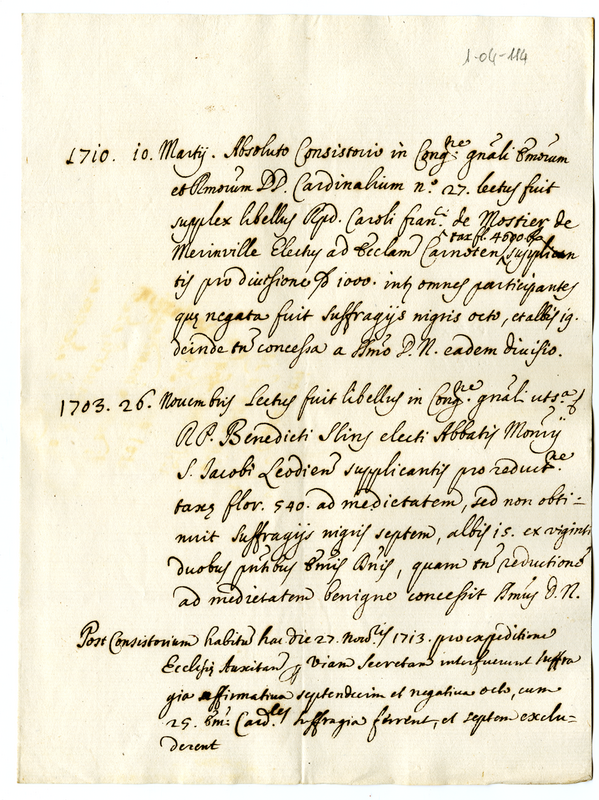 1-04-114
1710. 10. Martij. Absoluto Consistorio in Congne: gnãli Emorum
et Rmorum DD. Cardinalium n.º 27. lectus fuit
supplex libellus Rpd. Caroli franci: de Mostier de
Merinville Electus ad Ecclam Carnoten supplican
tax fl. 4000
tis pro diuisione 1000. int omnes participantes
quę negata fuit suffragijs nigris octo, et albis 19.
deinde tñ concessa a Smo D. N. eadem diuisio.
1703. 26. Nouembris Lectus fuit libellus in Congne: gnãli ut sa
R. P. Benedicti Slins electi Abbatis Monrij
S. Jacobi Leodien supplicantis pro reductne.
taxę flor. 540. ad medietatem, sed non obti=
nuit suffragijs nigris septem, albis 15. ex viginti
duobus pñtibus Emis Dnis, quam tñ reductione
ad medietatem benigne concessit Smus D. N.
Post Consistorium habitũ hac die 27. Nouris 1713. pro expeditione
Ecclesię Auxitan p viam secretam interfuerunt suffra
gia affirmatiua septemdecim et negatiua octo, cum
25. Emi: Cardles suffragia ferrent, et septem exclu-
derent